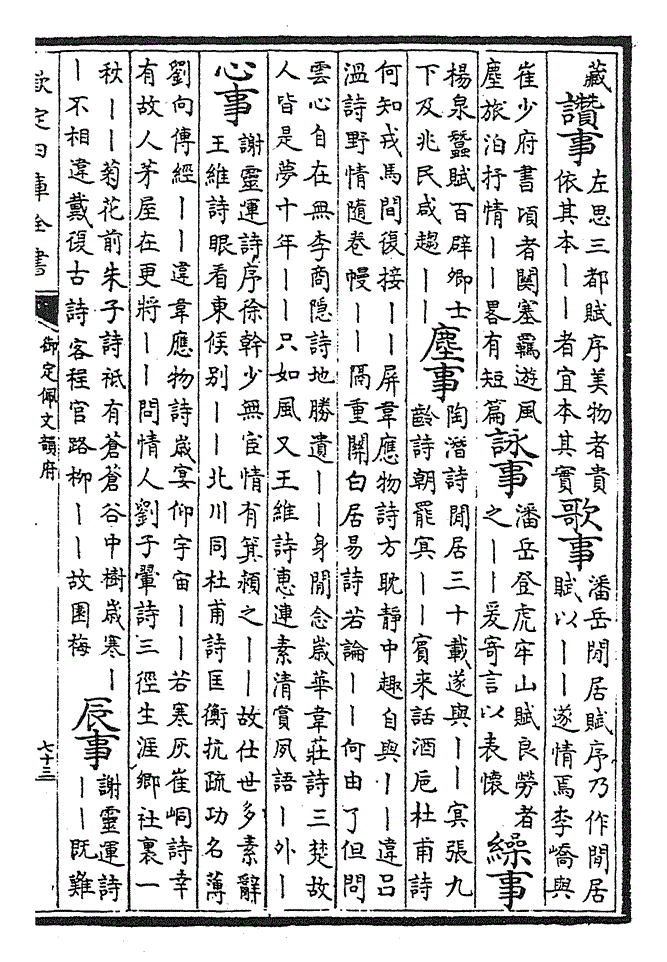 藏讚事左思三都賦序美物者貴
依其本――者宜本其實歌事潘岳閒居賦序乃作閒居
賦以――遂情焉李嶠與
崔少府書頃者關塞羈遊風
塵旅泊抒情――畧有短篇詠事潘岳登虎牢山賦良勞者
之――爰寄言以表懷繰事
楊泉蠶賦百辟卿士
下及兆民咸趨――塵事陶潛詩閒居三十載遂與――冥張九
齡詩朝罷冥――賓来話酒卮杜甫詩
何知戎馬間復接――屏韋應物詩方耽静中趣自與――違呂
温詩野情隨卷幔――隔重關白居易詩若論――何由了但問
雲心自在無李商隠詩地勝遺――身閒念嵗華韋莊詩三楚故
人皆是夢十年――只如風又王維詩惠連素清賞夙語―外―
心事謝靈運詩序徐幹少無宦情有箕潁之――故仕世多素辭
王維詩眼看東候别――北川同杜甫詩匡衡抗疏功名薄
劉向傳經――違韋應物詩嵗宴仰宇宙――若寒灰崔峒詩幸
有故人茅屋在更將――問情人劉子翬詩三徑生涯鄉社裏一
秋――菊花前朱子詩祇有蒼蒼谷中樹嵗寒―
―不相違戴復古詩客程官路柳――故園梅辰事謝靈運詩
――既難
欽定四庫全書
御定佩文韻府
七十三